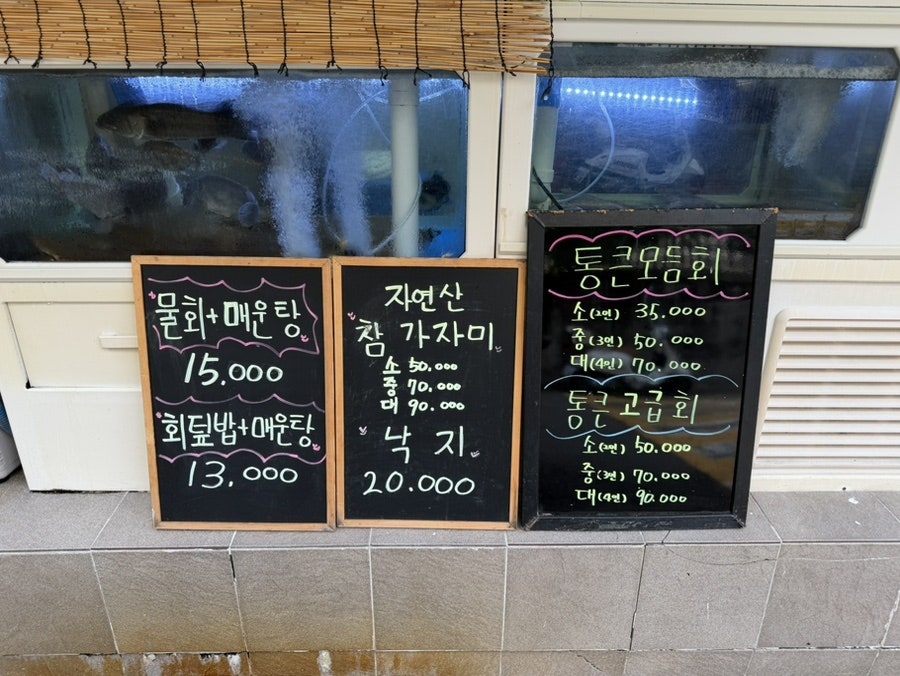 물회+매운탕
15.000
회덮밥+매운탕
13.000
자연산
참 가자미
소 50.000
중 70.000
대 90.000
낙지
20.000
통큰모듬회
소(2인) 35.000
중(3인) 50.000
대(4인) 70.000
통큰 고급회
소(2인) 50.000
중(3인) 70.000
대(4인) 90.000